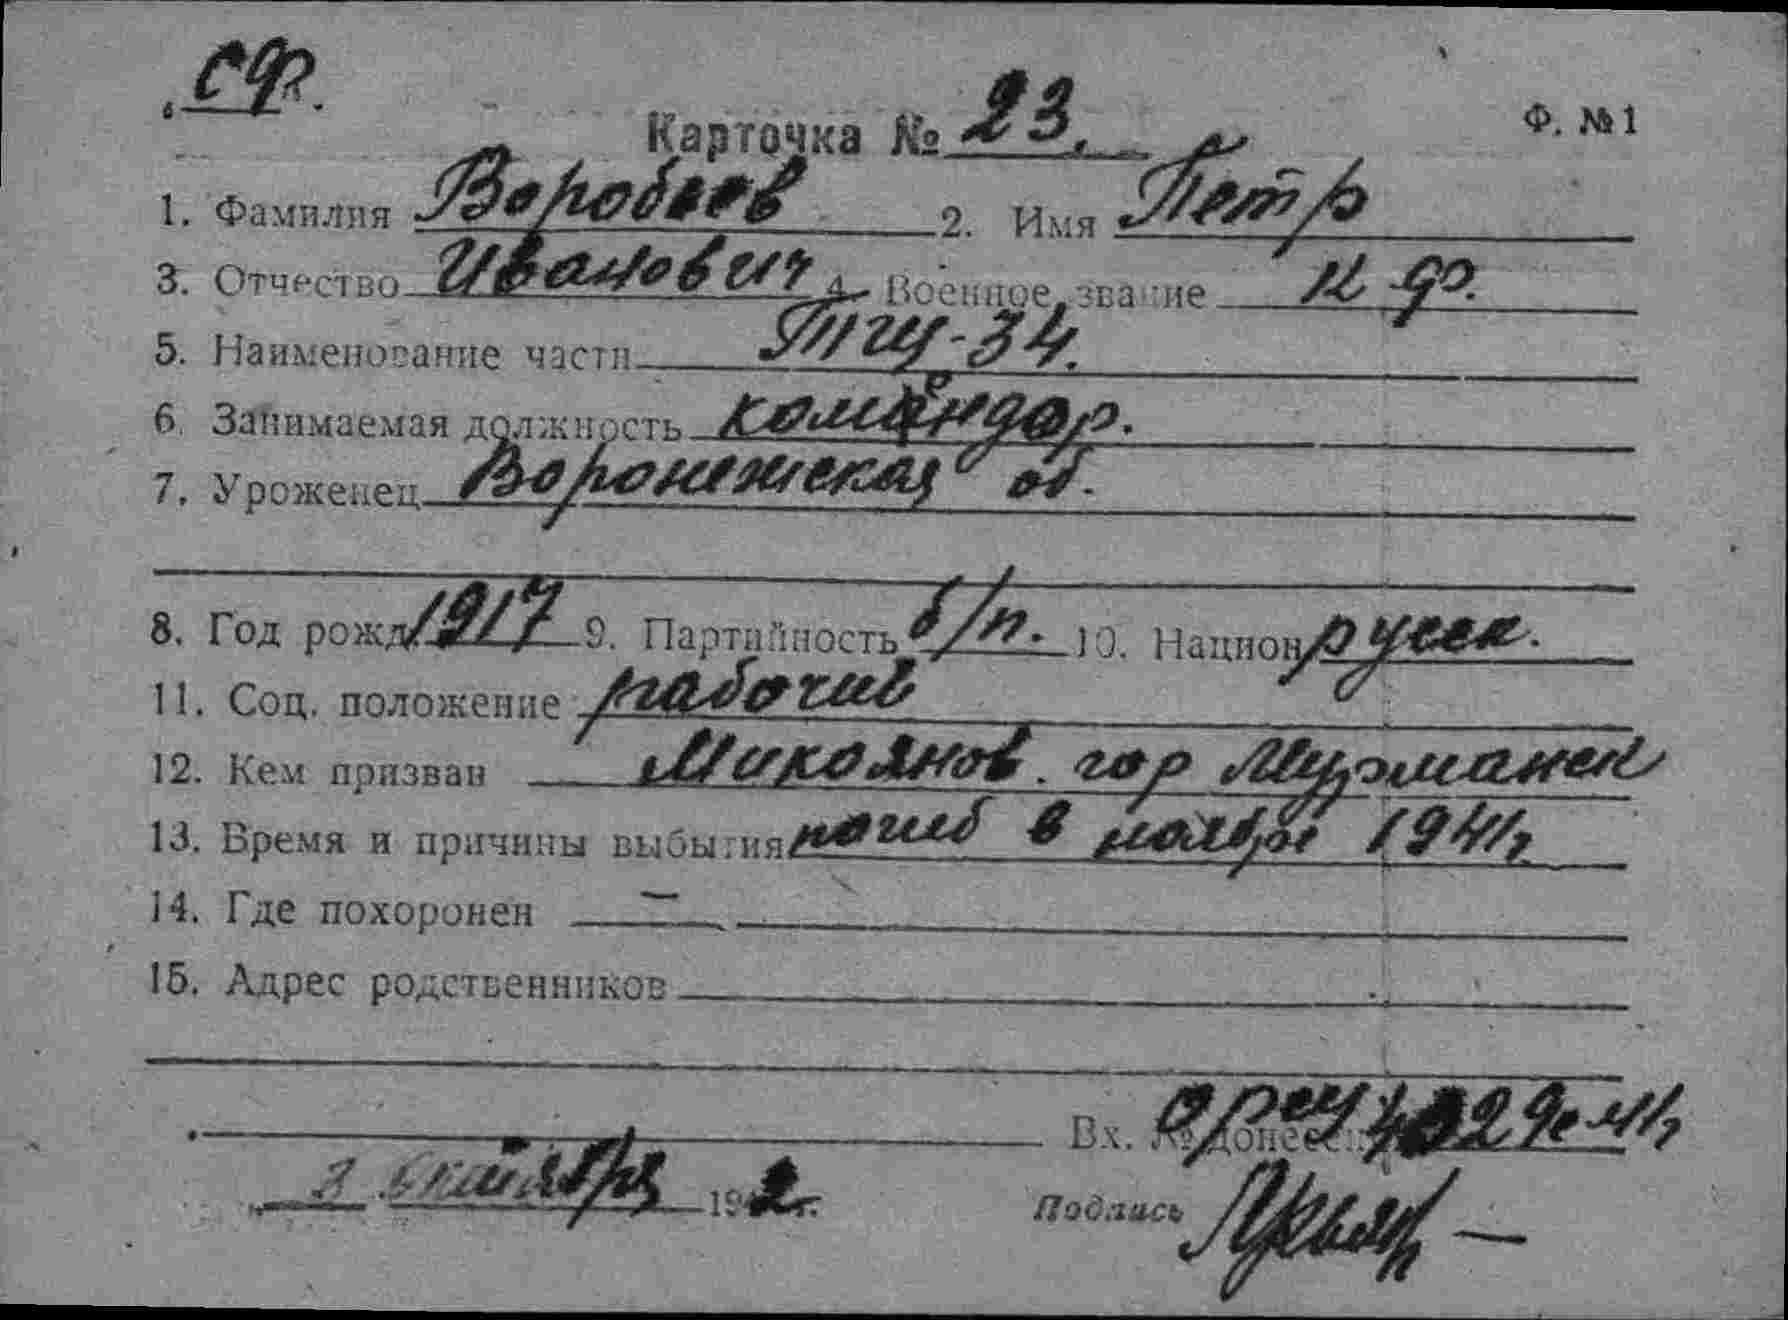 СФ.
Карточка № 23.
Ф. №1
1. Фамилия Воробьев 2. Имя Петр
3. Отчество Иванович 4. Военное звание к-ф.
5. Наименование части ТЩ-34.
6. Занимаемая должность командор.
7. Уроженец Воронежская об.
8. Год рожд. 1917 9. Партийность б/п. 10. Национ русск.
11. Соц. положение рабочий
12. Кем призван Микоянов. гор Мурманск
13. Время и причины выбытия погиб в ноябре 1941г
14. Где похоронен —
15. Адрес родственников
Вх. № донес
октября 19 2г.
Подпись